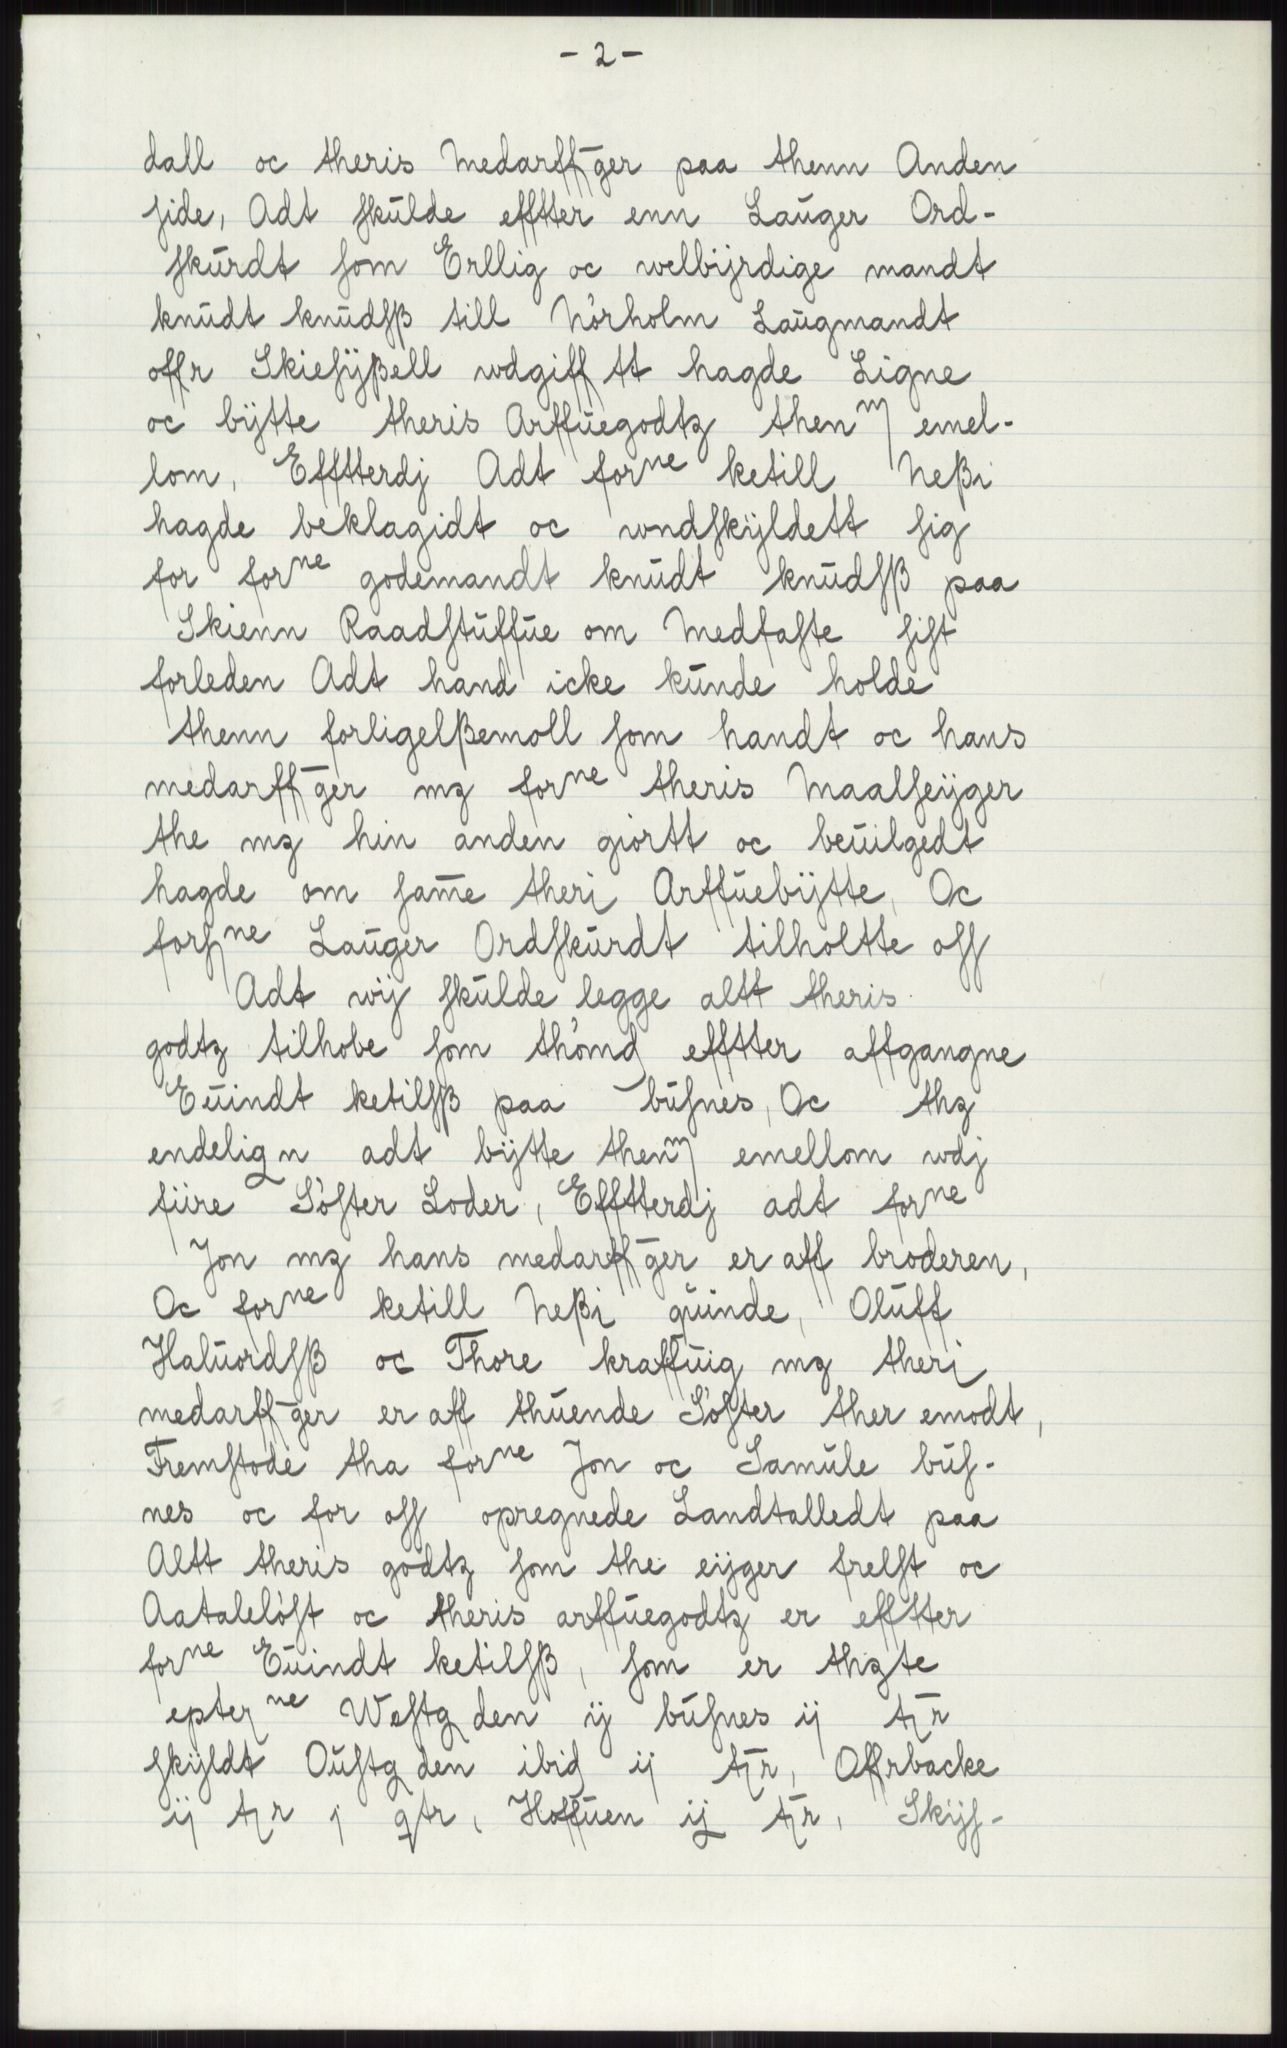 - 2 -
dall oc theris Medarff̄ger paa thenn Anden
side, Adt skulde effter enn Lauger Ord-
skurdt som Erllig oc welbijrdige mandt
knudt knudsß till Nörholm Laugmandt
offr Skiesÿßell wdgifftt hagde Ligne
oc bÿtte theris Arffuegodtz thenm emel-
lom, Efftterdj Adt forne ketill Neßi
hagde beklagidt oc wndskÿldett sig
for forne godemandt knudt knudsß paa
Skienn Raadstuffue om Medfaste sist
forleden Adt hand icke kunde holde
thenn forligelßemoll som handt oc hans
medarff̄ger mz forne theris Maalseÿger
the mz hin anden giörtt oc beuilgedt
hagde om sam̄e theri Arffuebÿtte, Oc
forsne Lauger Ordskurdt tilholtte oss
Adt wÿ skulde legge altt theris
godtz tilhobe som thömd efftter affgangne
Euindt ketilsß paa busnes, Oc thz
endelign adt bÿtte thenm emellom wdj
fiire Söster Loder, Efftterdj adt forne
Jon mz hans medarff̄ger er aff broderen,
Oc forne ketill Neßi quinde, Oluff
Haluordsß oc Thore kraffuig mz theri
medarff̄ger er aff thuende Söster ther emodt,
Fremstode tha forne Jon oc Samule bus-
nes oc for oss opregnede Landtalledt paa
Altt theris godtz som the eÿger frelst oc
Aatalelöst oc theris arffuegodtz er efftter
forne Euindt ketilsß, som er thzte
epter ne Westg den ÿ busnes ij tr̄
skÿldt Oustg den ibid ij tr̄, Offrbacke
ij tr j qtr, Hoffuen ij tr̄, Skÿs-